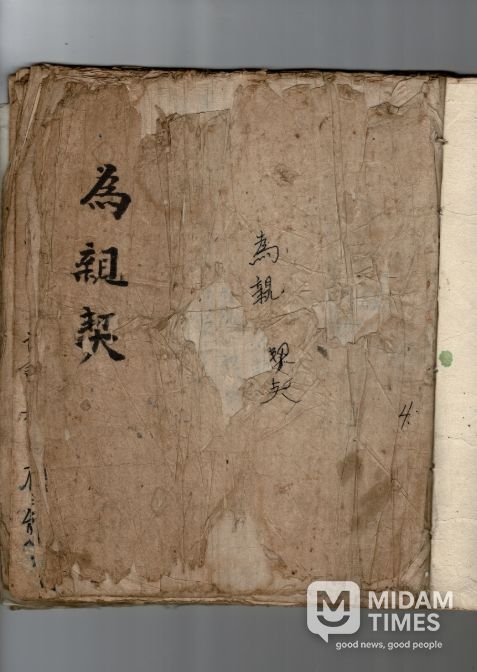 為親契
為親契
4
MIDAM
TIMES
good news, good people